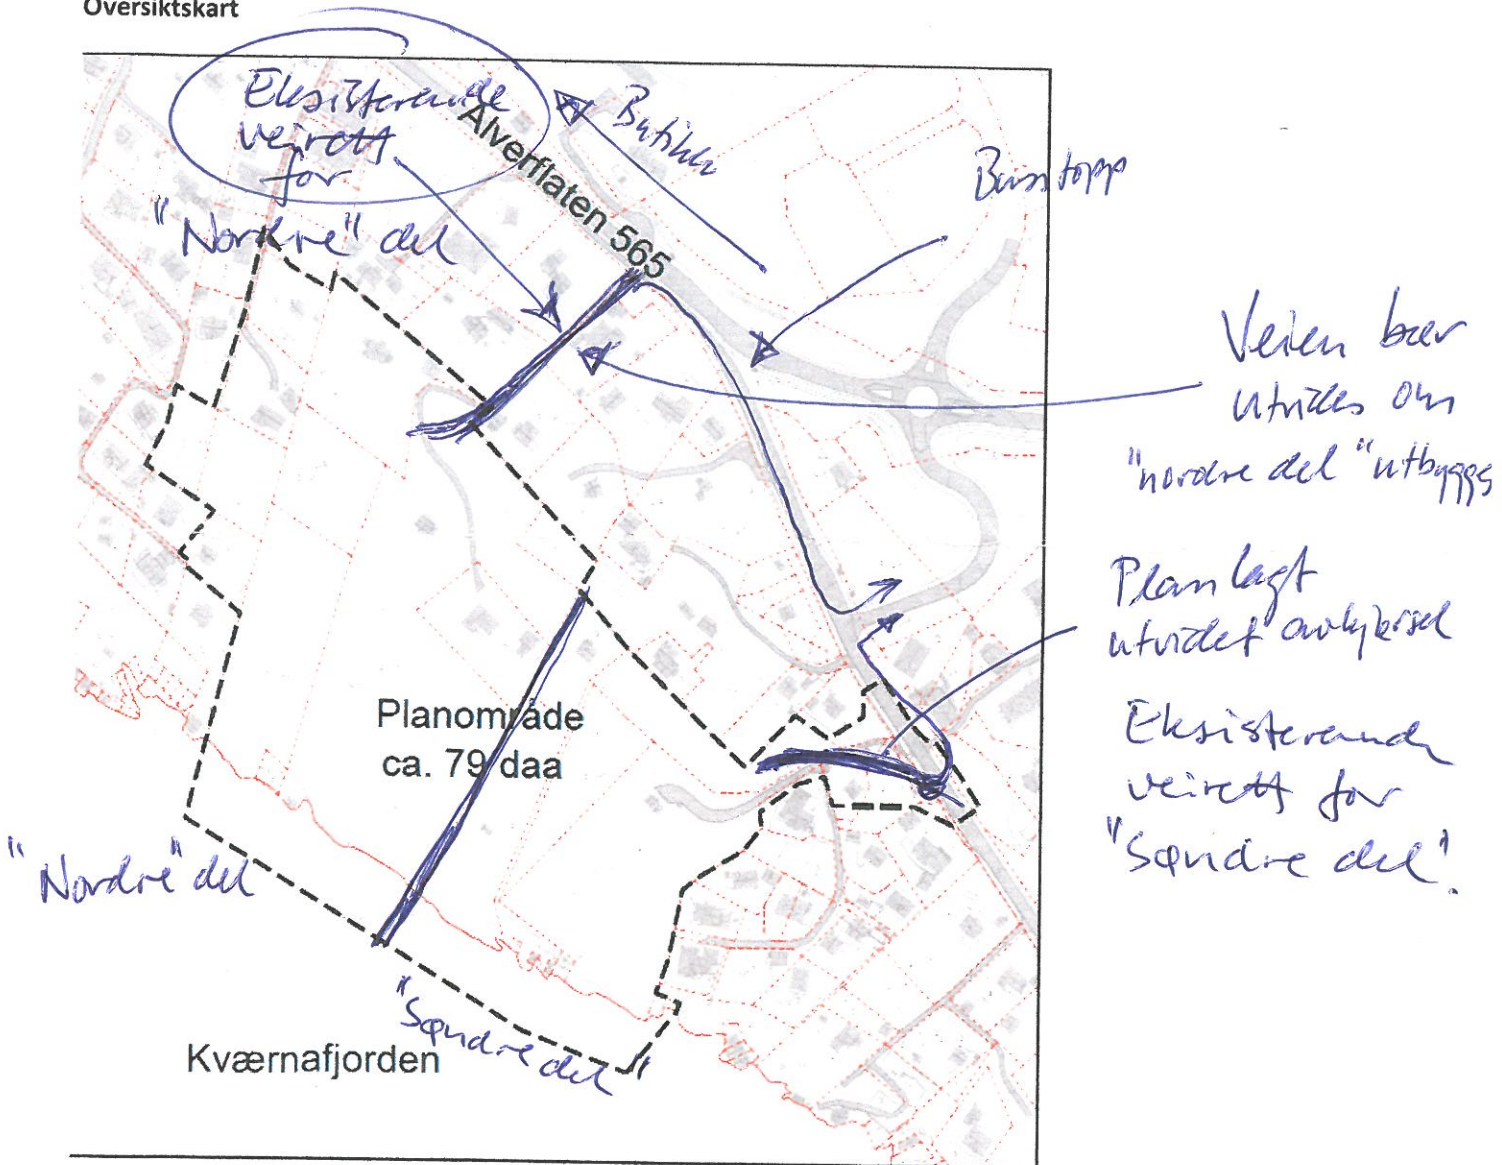 Oversiktskart
Eksisterende
veirett
for
"Nordre" del
Alverflaten 565
Butikk
Busstopp
Veien bør
utvides om
"nordre del" utbyggs
Planlagt
utvidet avkjørsel
Eksisterende
veirett for
"Søndre del".
Planområde
ca. 79 daa
"Nordre" del
"Søndre del"
Kværnafjorden